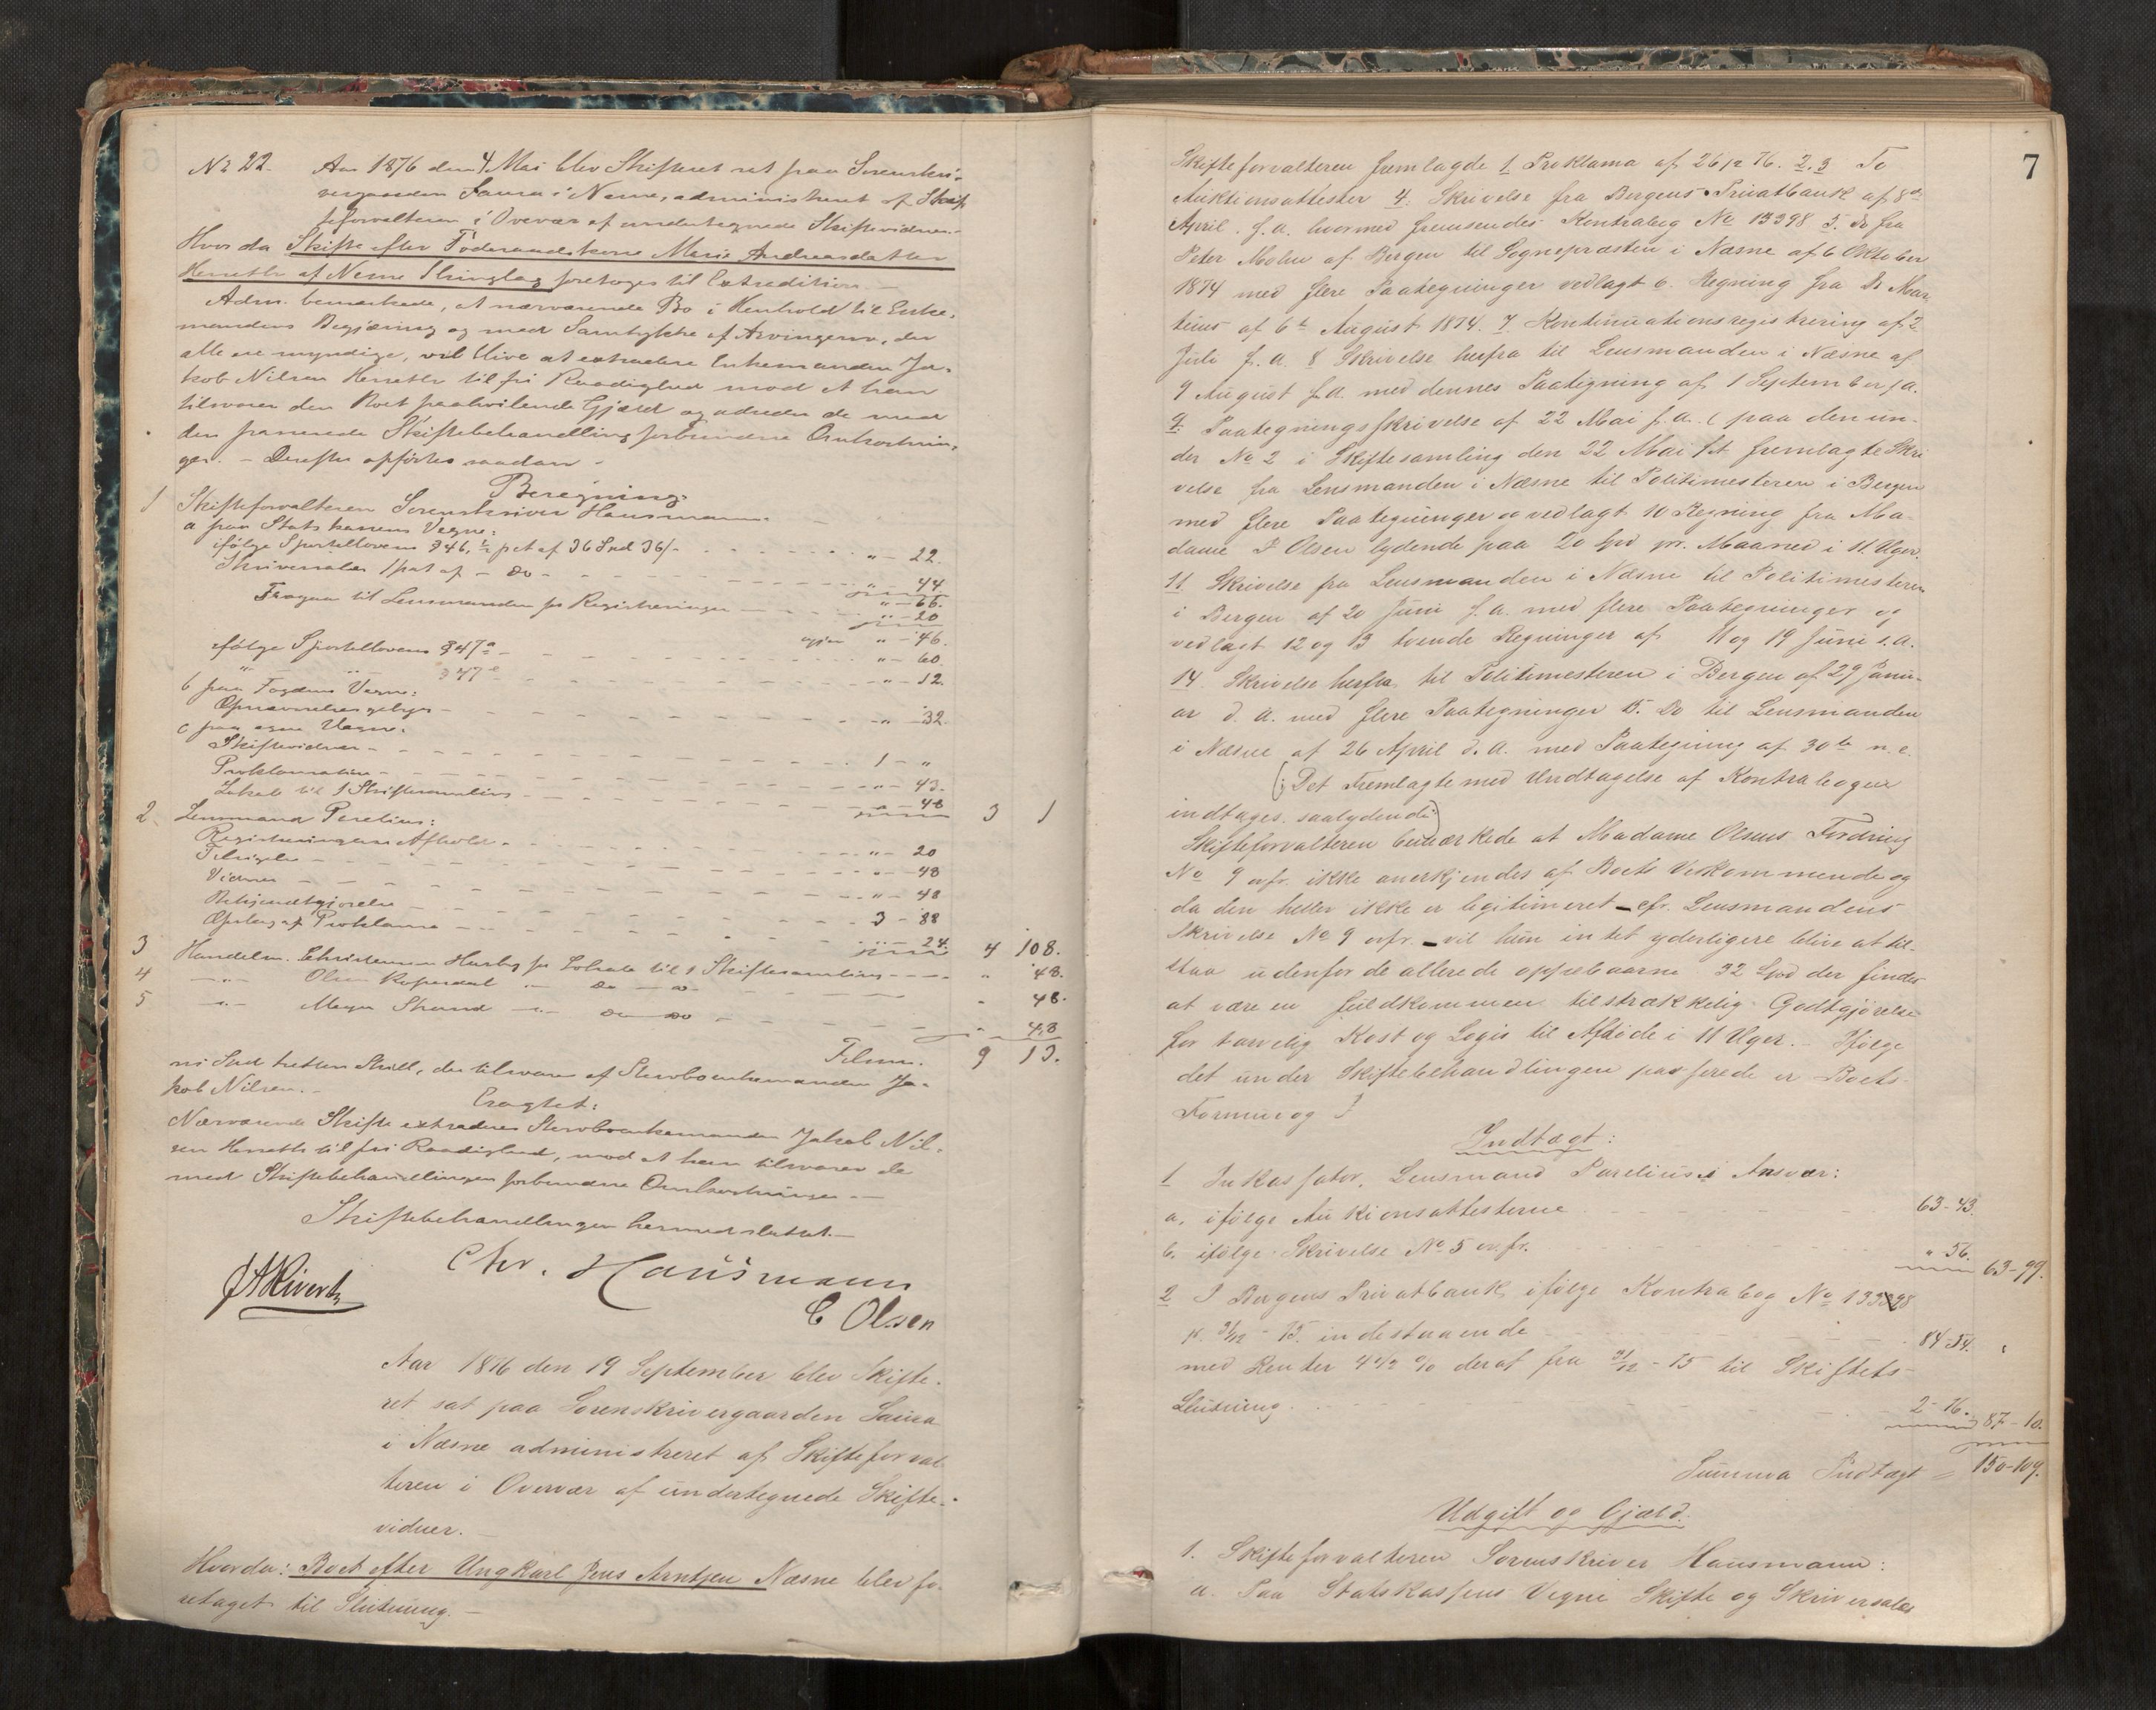 No 22. Aar 1876 den 4 Mai blev Skifteret sat paa Sorenskri-
vergaarden Saura i Nesne, administreret af Skif-
teforvalteren i Overvær af undertegnede Skiftevidner.-
Hvor da Skifte efter Føderaadskone Marie Andreasdatter
Herseth af Nesne Thinglag foretoges til Extradition.-
Adm. bemærkede, at nærværende Bo i Henhold til Enke-
mandens Begjæring og med Samtykke af Arvingerne, der
alle ere myndige, vil blive at extradere Enkemanden Ja-
kob Nilsen til fri Raadighed mod at han
tilsvarer den Boet paahvilende Gjæld og udreder de med
den passerede Skiftebehandling forbundne Omkostnin-
ger. - Derefter opførtes saadan
Beregning.
1 Skifteforvalteren Sorenskriver Hausmann.
a paa Statskassens Vegne:
ifølge Sportellovens § 46, ½ pct af 36 Spd 36 s - " - 22.
Skriversalær 1 pct af - Do - " - 44
" - 66.
Fragaar til Lensmanden for Registreringen - " - 20
igjen " - 46.
ifølge Sportellovens § 47 a - " - 60.
" " § 47 e - " - 12.
b paa Fogdens Vegne:
Opnævnelsesgebyr - " - 32.
c paa egne Vegne.
Skiftevidner - 1 - "
Proklamation - " - 43.
Lokale til 1 Skiftesamling - " - 48 3 1
2 Lensmand Parelius:
Registreringens Afhold. " - 20
Tilsigelse - " - 48
Vidner - " - 48
Bekjendtgjørelse 3 - 88
Opslag af Proklama - " - 24. 4 108.
3 Handelsm. Christensen Husby for Lokale til 1 Skiftesamling - " 48.
4 - " - Olsen - " - Do - " 48.
5 - " - Meyer Strand - " - Do Do - " 48
Tilsam. 9 13.
ni Spd tretten Skill, der tilsvares af Stervboenkemanden Ja-
kob Nilsen.-
Eragtet:
Nærværende Skifte extraderes Stervboenkemanden Jakob Nil-
sen til fri Raadighed, mod at han tilsvarer de
med Skiftebehandlingen forbundne Omkostninger.-
Skiftebehandlingen hermed sluttet.-
Chr. Hausmann
C Olsen
Aar 1876 den 19 September blev Skifte-
ret sat paa Sorenskrivergaarden Saura
i Næsne administreret af Skifteforval-
teren i Overvær af undertegnede Skifte-
vidner.-
Hvorda: Boet efter Ungkarl Jens Arntsen Næsne blev fo-
retaget til Slutning.-
7
Skifteforvalteren fremlagde 1 Proklama af 76. 2, 3 To
Auktionsattester 4. Skrivelse fra Bergens Privatbank af 8de
April f.a. hvormed fremsendes Kontrabog No 13398 5. Do fra
Peter Molm af Bergen til Sognepræsten i Næsne af 6 Oktober
1874 med flere Paategninger vedlagt 6. Regning fra Dr Mar-
tens af 6te August 1874. 7. Kontinuationsregistrering af 2
Juli f.a. 8 Skrivelse herfra til Lensmanden i Næsne af
9 August f.a. med dennes Paategning af 1 September f.a.
9. Paategningsskrivelse af 22 Mai f.a. (paa den un-
der No 2 i Skiftesamling den 22 Mai f.A. fremlagte Skri-
velse fra Lensmanden i Næsne til Politimesteren i Bergen
med flere Paategninger og vedlagt 10 Regning fra Ma-
dame Olsen lydende paa 20 Spd pr. Maaned i 11 Uger.
11. Skrivelse fra Lensmanden i Næsne til Politimesteren
i Bergen af 20 Juni f.a. med flere Paategninger og
vedlagt 12 og 13 tvende Regninger af 11 og 19 Juni s.a.
14. Skrivelse herfra til Politimesteren i Bergen af 29 Janu-
ar d.a. med flere Paategninger 15. Do til Lensmanden
i Næsne af 26 April d.a. med Paategning af 30te n.e.
(: Det Fremlagte med Undtagelse af Kontrabogen
indtages saalydende:)
Skifteforvalteren bemærkede at Madame Olsens Fordring
No 9 ovfr. ikke anerkjendes af Boets Vedkommende og
da den heller ikke er legitimeret - cfr. Lensmandens
Skrivelse No 9 ovfr. - vil hun intet yderligere blive at til-
staa udenfor de allerede oppebaarne 32 Spd der findes
at være en fuldkommen tilstrækkelig Godtgjørelse
for tarvelig Kost og Logis til Afdøde i 11 Uger. - Ifølge
det under Skiftebehandlingen passerede er Boets
Formue og
Indtægt:
1 Inkassator, Lensmand Parelius's Ansvar:
a. ifølge Auktionsattesterne 63-43.
b. ifølge Skrivelse No 5 ovfr. " 56. 63-99.
2 I Bergens Privatbank ifølge Kontrabog No 13398
pr. 31/12 - 75. indestaaende 84-54.
med Renter 4½ % deraf fra 31/12 - 75 til Skiftets
Slutning. 2-76. 87-10.
Summa Indtægt = 150-109.
Udgift og Gjæld.
1. Skifteforvalteren Sorenskriver Hausmann:
a. Paa Statskassens Vegne Skifte og Skriversalær